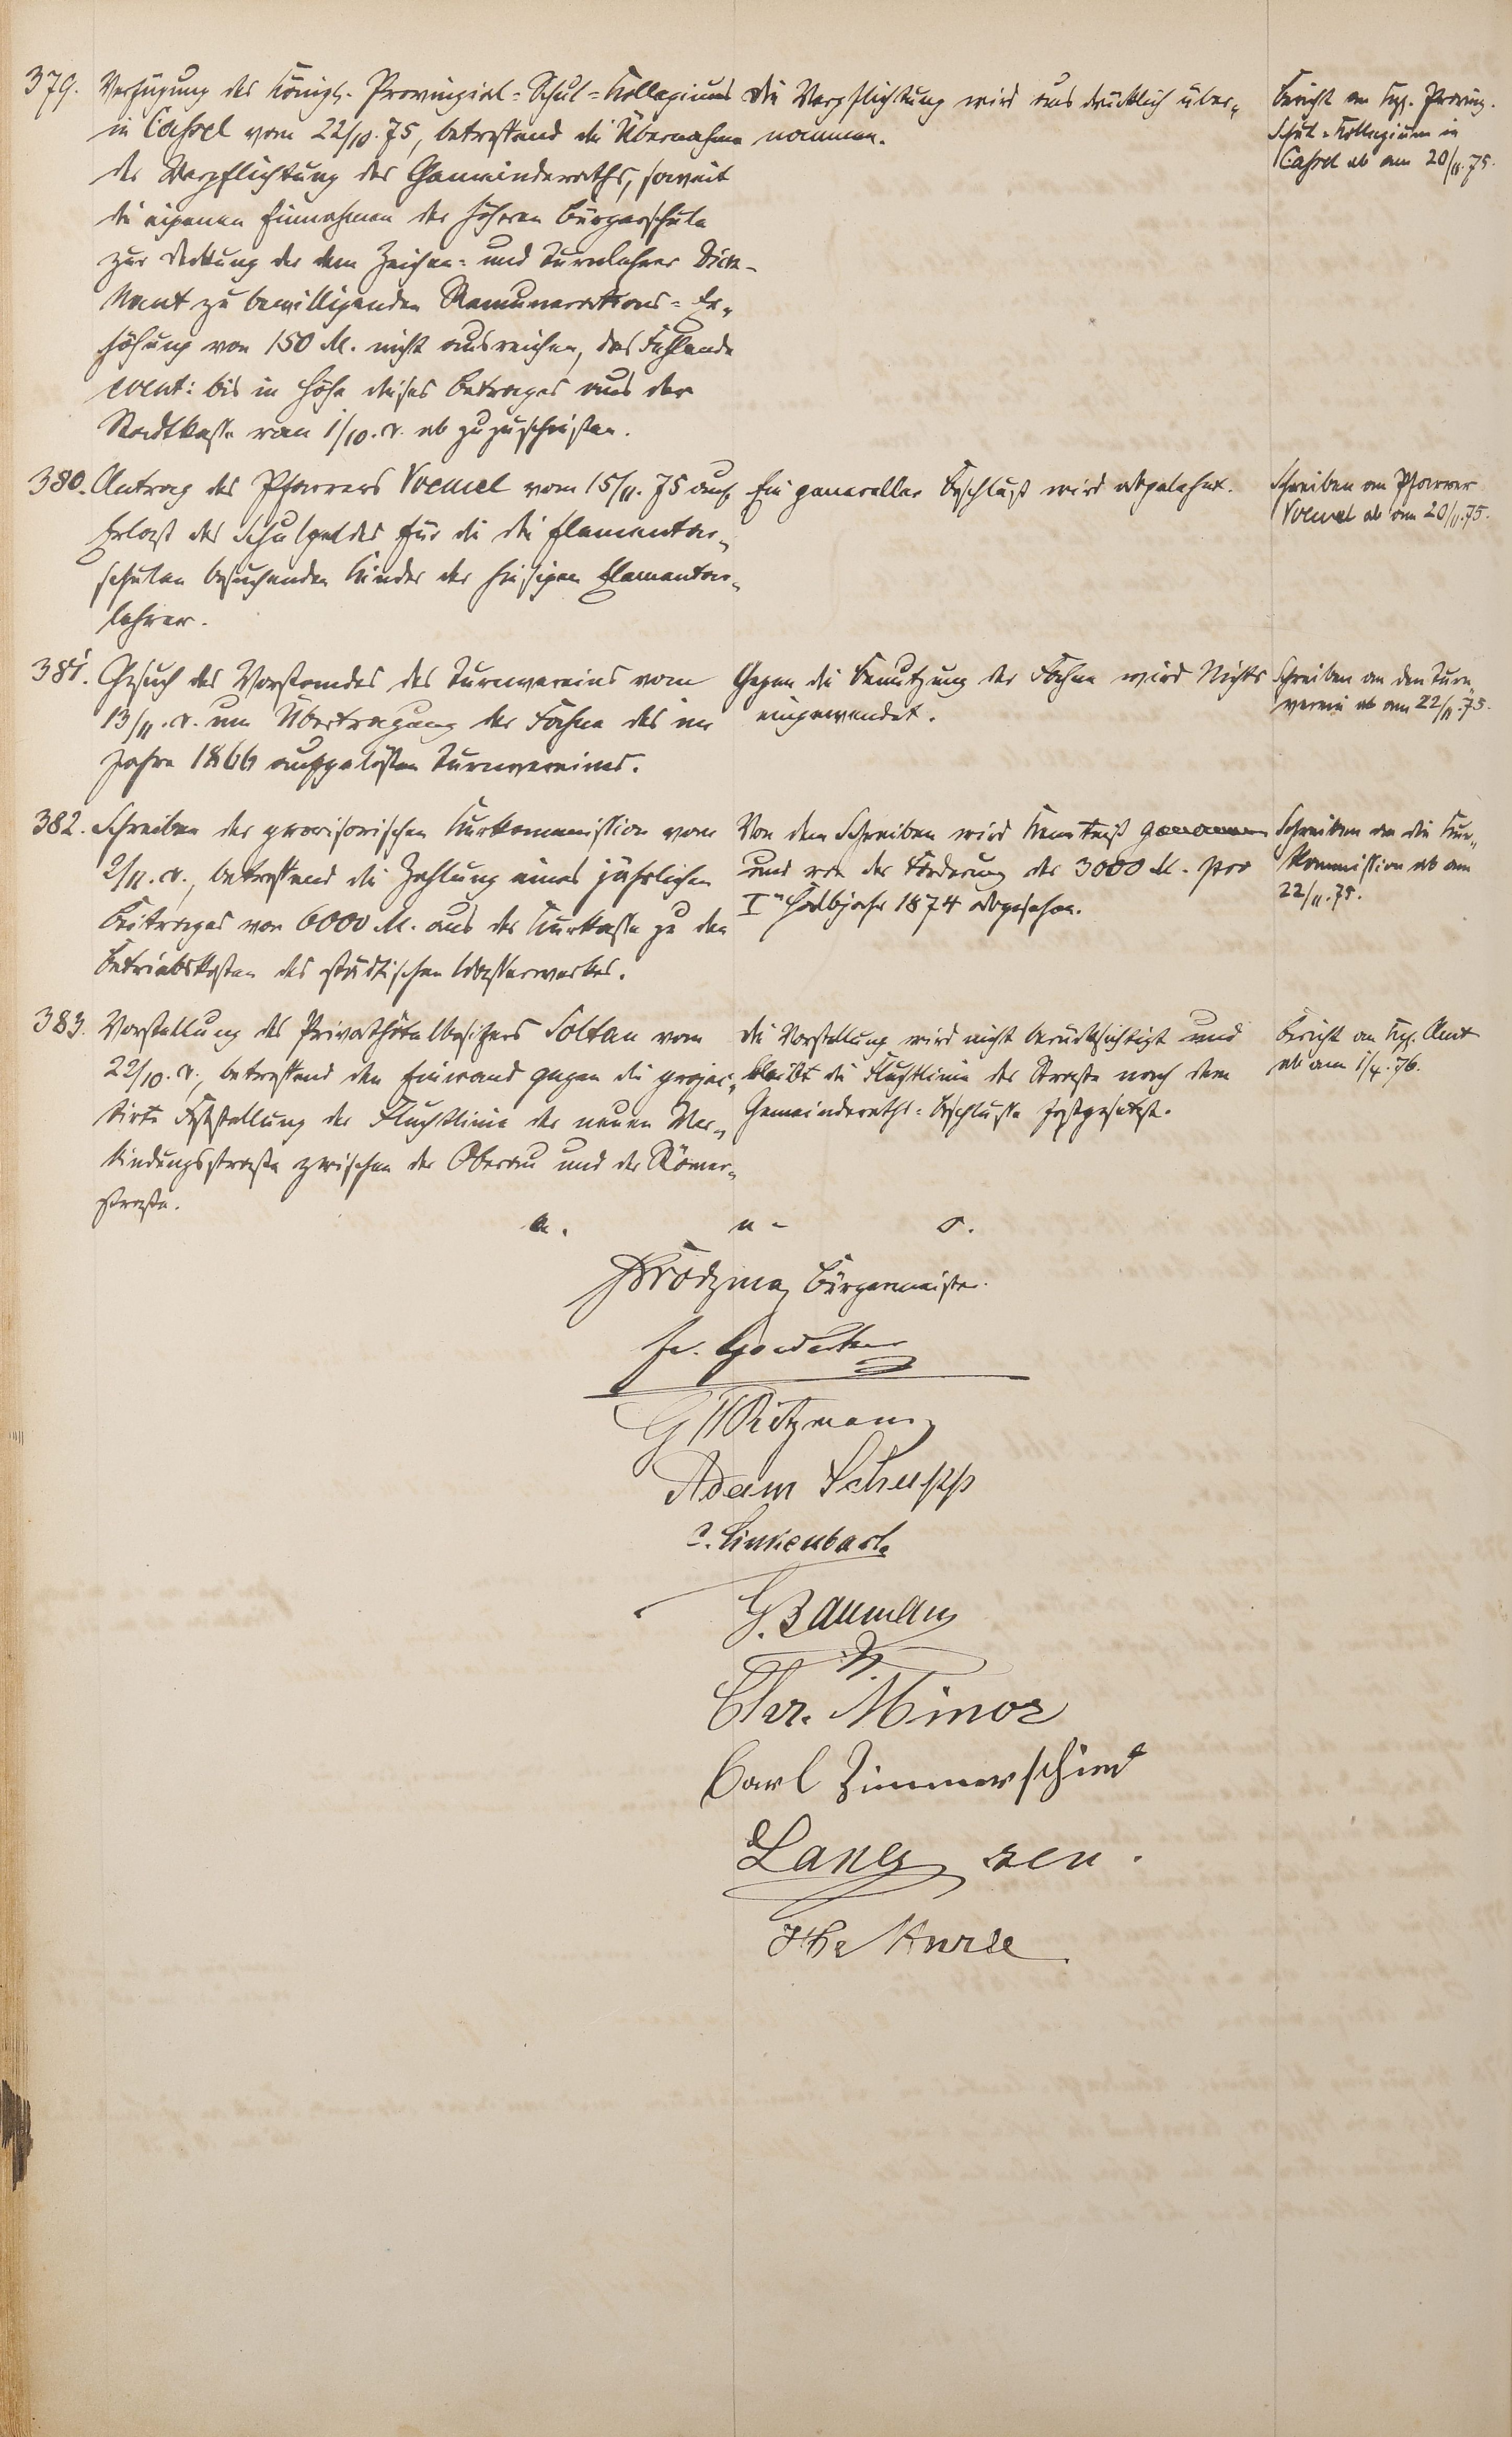 379. Verfügung des Königl. Provinzial-Schul-Kollegiums
in Cassel vom 22/10. 75, betreffend die Übernahme
der Verpflichtung des Gemeinderaths, soweit
die eigenen Einnahmen der höheren Bürgerschule
zur Deckung der dem Zeichen- und Turnlehrer Dick-
haut zu bewilligenden Remunerations-Er-
höhung von 150 M. nicht ausreichen, das Fehlende
event: bis in Höhe dieses Betrages aus der
Stadtkasse vom 1/10. c. ab zuzuschießen.
Die Verpflichtung wird ausdrücklich über-
nommen.
Bericht an Kgl. Provinz.
Schul-Kollegium in
Cassel ab am 20/11. 75.
380. Antrag des Pfarrers Voemel vom 15/11. 75 auf
Erlaß des Schulgeldes für die die Elementar-
schulen besuchenden Kinder der hiesigen Elementar-
lehrer.
Ein genereller Beschluß wird abgelehnt.
Schreiben an Pfarrer
Voemel ab am 20/11. 75.
381. Gesuch des Vorstandes des Turnvereins vom
13/11. c. um Übertragung der Fahne des im
Jahre 1866 aufgelösten Turnvereines.
Gegen die Benutzung der Fahne wird Nichts
eingewendet.
Schreiben an den Turn-
verein ab am 22/11. 75.
382. Schreiben der provisorischen Kurkommission vom
2/11. c., betreffend die Zahlung eines jährlichen
Beitrages von 6000 M. aus der Kurkasse zu den
Betriebskosten des städtischen Wasserwerkes.
Von dem Schreiben wird Kenntniß genommen
und von der Forderung der 3000 M. pro
I. Halbjahr 1874 abgesehen.
Schreiben an die Kur-
kommission ab am
22/11. 75.
383. Vorstellung des Privathôtelbesitzers Soltau vom
22/10. c., betreffend den Einwand gegen die projec-
tirte Feststellung der Fluchtlinie der neuen Ver-
bindungsstraße zwischen der Oberau und der Römer-
straße.
Die Vorstellung wird nicht berücksichtigt und
bleibt die Fluchtlinie der Straße nach dem
Gemeinderaths-Beschlusse festgesetzt.
Bericht an Kgl. Amt
ab am 1/4. 76.
a. u. s.
Bürgermeister.
Fr.
G W Ritzmann
Adam Schupp
Linkenbach
G. Baumann
Chr. Minor
Carl Zimmerschied
Lang sen.